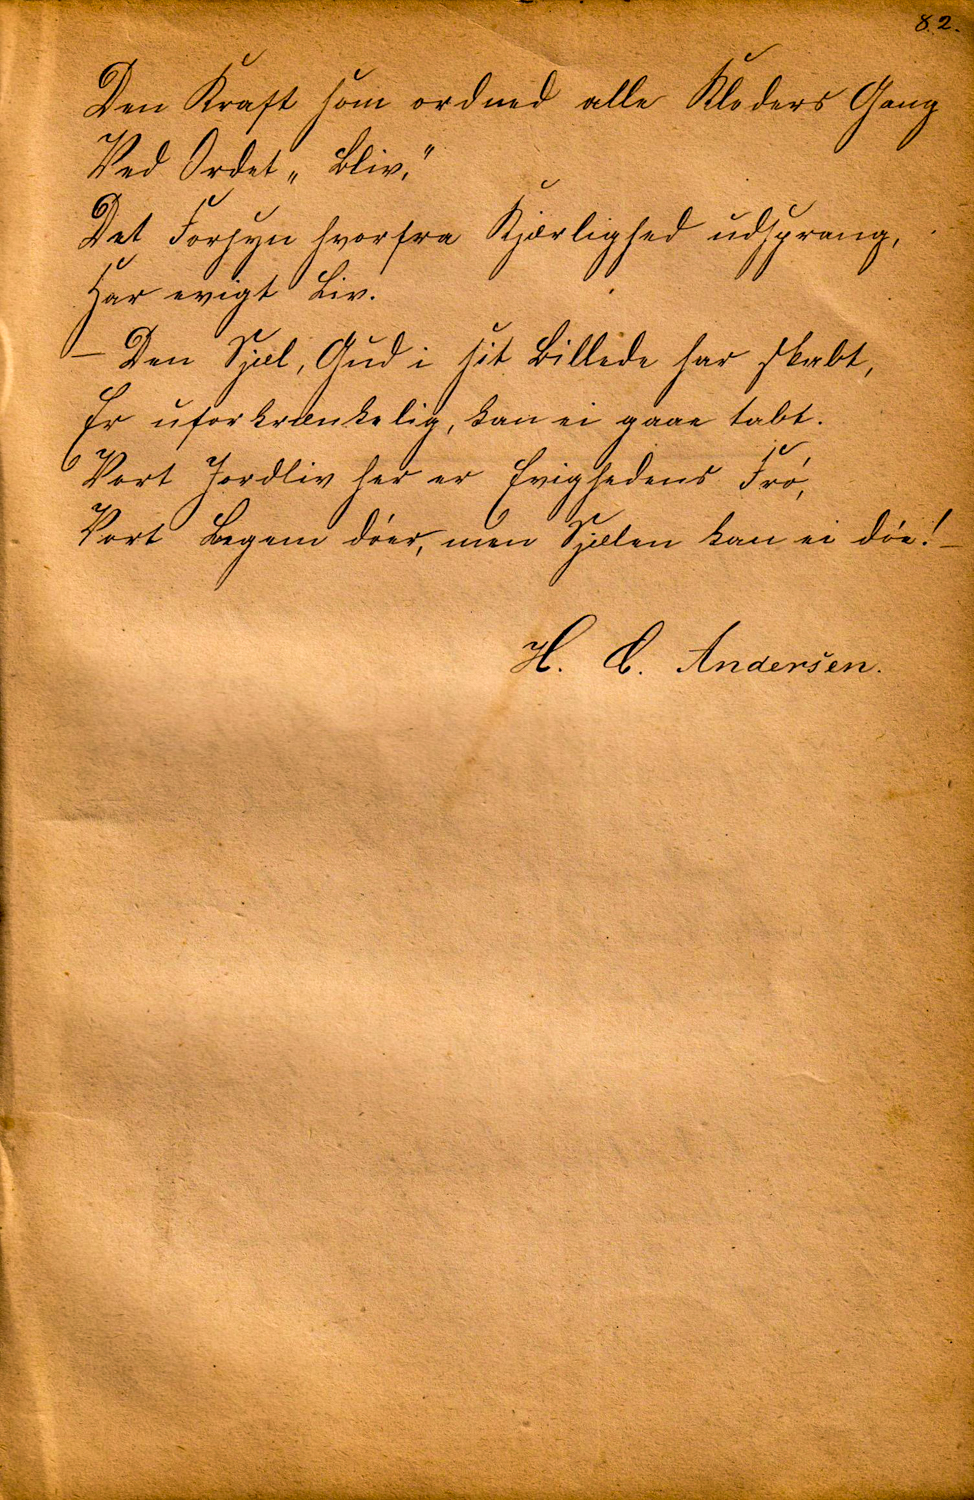 82.
Den Kraft som ordned alle Kloders Gang
Ved Ordet „Bliv,"
Det Forsyn hvorfra Kjærlighed udsprang,
Har evigt Liv.
— Den Sjæl, Gud i sit Billede har skabt,
Er uforkrænkelig, kan ei gaae tabt.
Vort Jordliv her er Evighedens Frö,
Vort Legem döer, men Sjælen kan ei döe! —
H. C. Andersen.